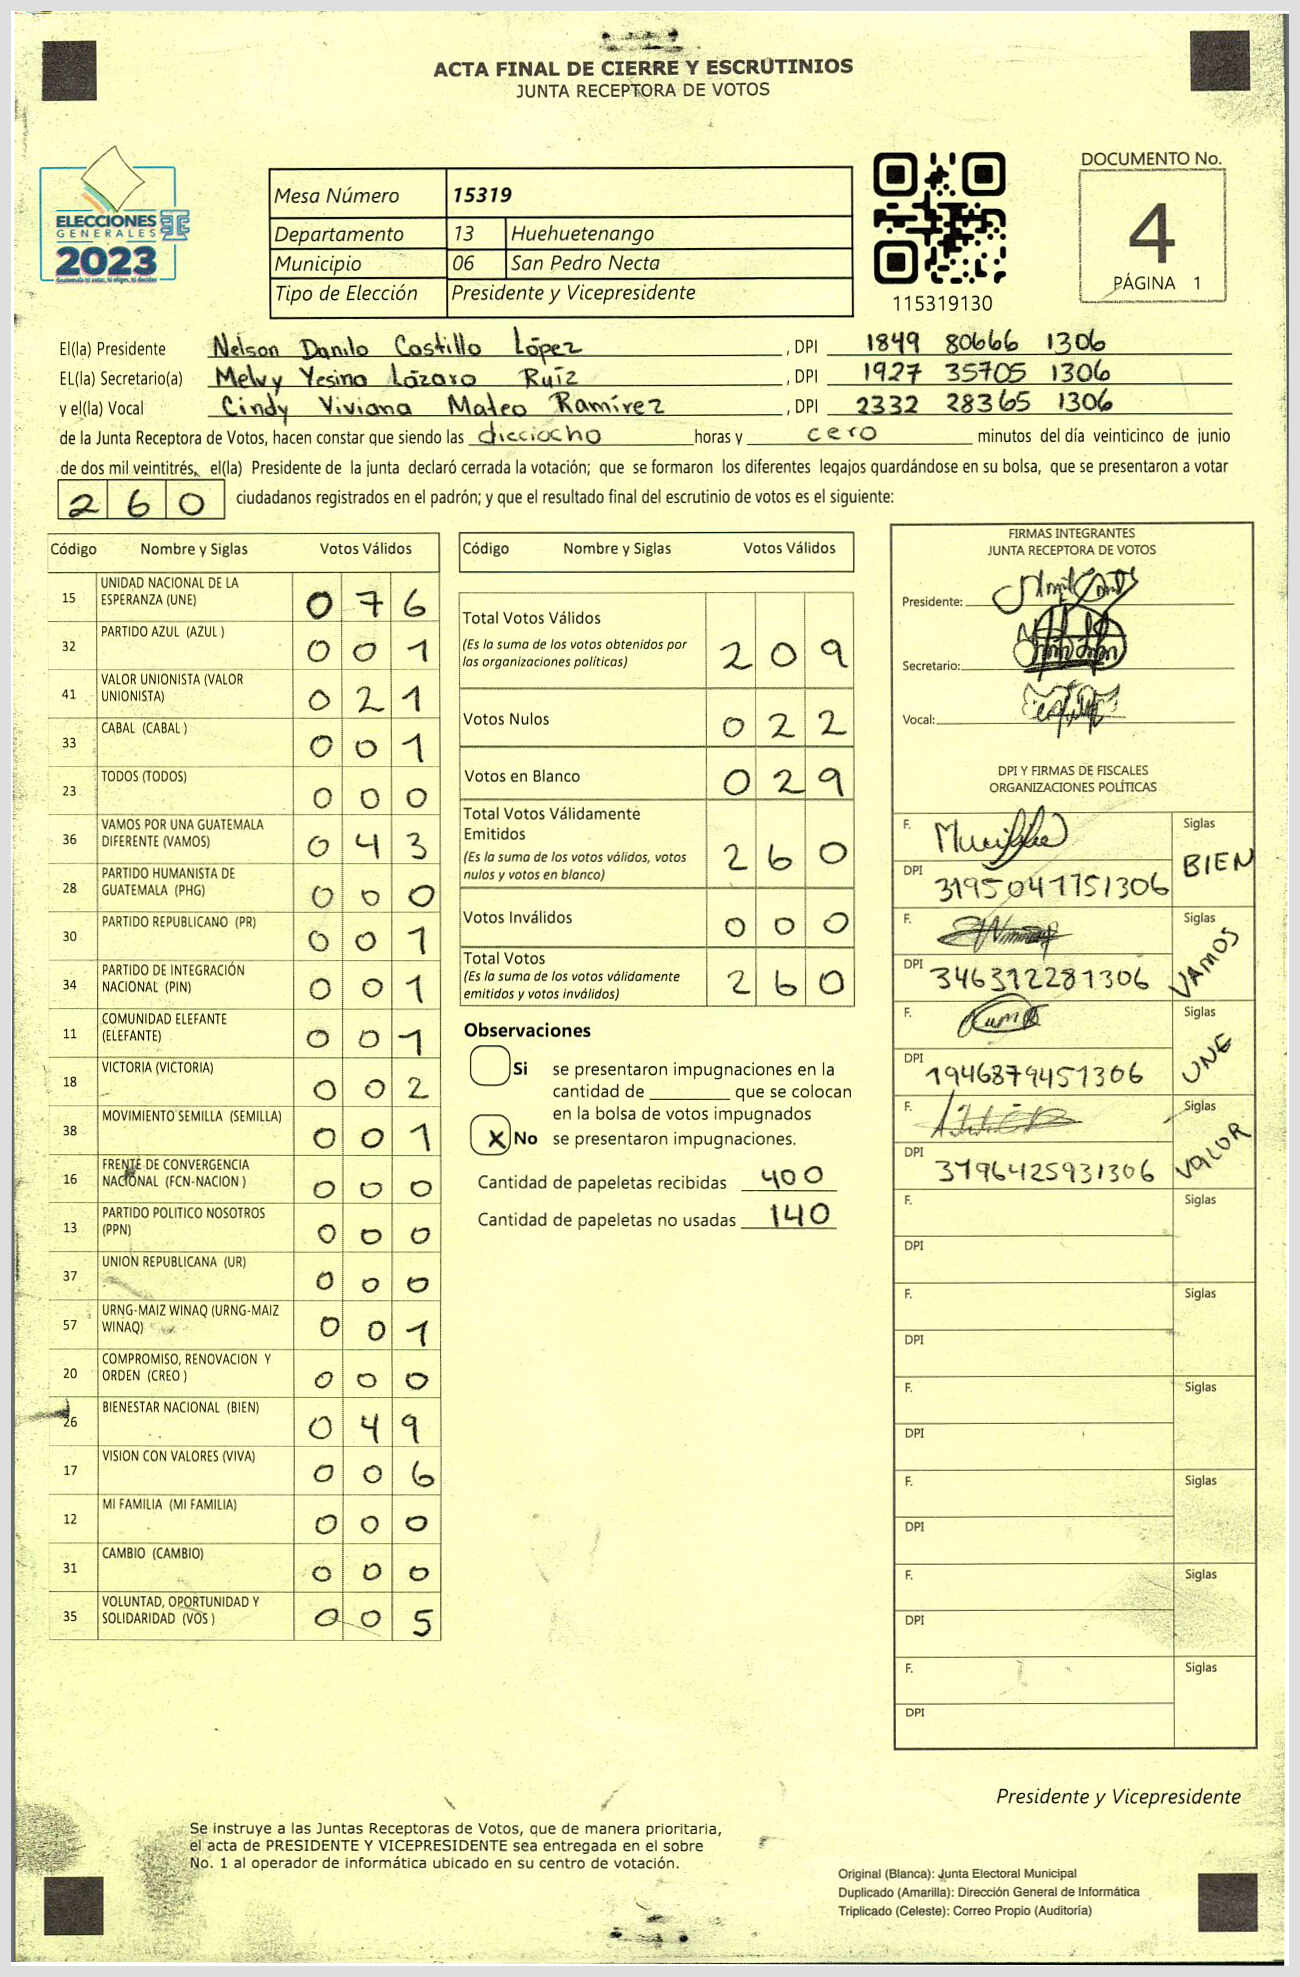 ACTA FINAL DE CIERRE Y ESCRUTINIOS
JUNTA RECEPTORA DE VOTOS
ELECCIONES
GENERALES
2023
Mesa Número 15319
Departamento 13 Huehuetenango
Municipio 06 San Pedro Necta
Tipo de Elección Presidente y Vicepresidente
115319130
DOCUMENTO No.
4
PÁGINA 1
El(la) Presidente Nelson Danilo Castillo López, DPI 1849 80666 1306
EL(la) Secretario(a) Melvy Yesina Lázaro Ruíz, DPI 1927 35705 1306
y el(la) Vocal Cindy Viviana Mateo Ramírez, DPI 2332 28365 1306
de la Junta Receptora de Votos, hacen constar que siendo las dieciocho horas y cero minutos del día veinticinco de junio
de dos mil veintitrés, el(la) Presidente de la junta declaró cerrada la votación; que se formaron los diferentes legajos quardándose en su bolsa, que se presentaron a votar
260 ciudadanos registrados en el padrón; y que el resultado final del escrutinio de votos es el siguiente:
Código Nombre y Siglas Votos Válidos
15 UNIDAD NACIONAL DE LA ESPERANZA (UNE) 076
32 PARTIDO AZUL (AZUL ) 001
41 VALOR UNIONISTA (VALOR UNIONISTA) 021
33 CABAL (CABAL ) 001
23 TODOS (TODOS) 000
36 VAMOS POR UNA GUATEMALA DIFERENTE (VAMOS) 043
28 PARTIDO HUMANISTA DE GUATEMALA (PHG) 000
30 PARTIDO REPUBLICANO (PR) 001
34 PARTIDO DE INTEGRACIÓN NACIONAL (PIN) 001
11 COMUNIDAD ELEFANTE (ELEFANTE) 001
18 VICTORIA (VICTORIA) 002
38 MOVIMIENTO SEMILLA (SEMILLA) 001
16 FRENTE DE CONVERGENCIA NACIONAL (FCN-NACION ) 000
13 PARTIDO POLITICO NOSOTROS (PPN) 000
37 UNION REPUBLICANA (UR) 000
57 URNG-MAIZ WINAQ (URNG-MAIZ WINAQ) 001
20 COMPROMISO, RENOVACION Y ORDEN (CREO ) 000
26 BIENESTAR NACIONAL (BIEN) 049
17 VISION CON VALORES (VIVA) 006
12 MI FAMILIA (MI FAMILIA) 000
31 CAMBIO (CAMBIO) 000
35 VOLUNTAD, OPORTUNIDAD Y SOLIDARIDAD (VOS ) 005
Código Nombre y Siglas Votos Válidos
Total Votos Válidos
(Es la suma de los votos obtenidos por
las organizaciones políticas) 209
Votos Nulos 022
Votos en Blanco 029
Total Votos Válidamente
Emitidos
(Es la suma de los votos válidos, votos
nulos y votos en blanco) 260
Votos Inválidos 000
Total Votos
(Es la suma de los votos válidamente
emitidos y votos inválidos) 260
Observaciones
Si se presentaron impugnaciones en la
cantidad de ________ que se colocan
en la bolsa de votos impugnados
X No se presentaron impugnaciones.
Cantidad de papeletas recibidas 400
Cantidad de papeletas no usadas 140
FIRMAS INTEGRANTES
JUNTA RECEPTORA DE VOTOS
Presidente:
Secretario:
Vocal:
DPI Y FIRMAS DE FISCALES
ORGANIZACIONES POLÍTICAS
F. Siglas BIEN
DPI 3195041751306
F. Siglas VAMOS
DPI 346312281306
F. Siglas UNE
DPI 1946879451306
F. Siglas VALOR
DPI 3796425931306
F. Siglas
DPI
F. Siglas
DPI
F. Siglas
DPI
F. Siglas
DPI
F. Siglas
DPI
F. Siglas
DPI
Presidente y Vicepresidente
Se instruye a las Juntas Receptoras de Votos, que de manera prioritaria,
el acta de PRESIDENTE Y VICEPRESIDENTE sea entregada en el sobre
No. 1 al operador de informática ubicado en su centro de votación.
Original (Blanca): Junta Electoral Municipal
Duplicado (Amarilla): Dirección General de Informática
Triplicado (Celeste): Correo Propio (Auditoría)